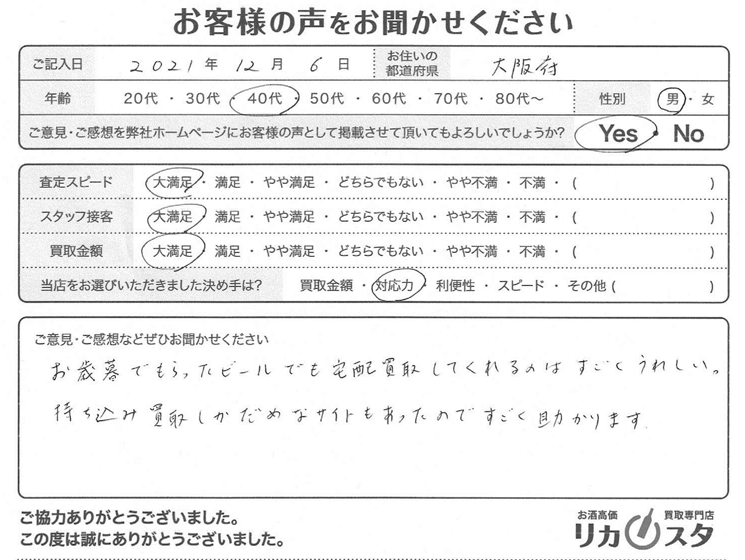 お客様の声をお聞かせください
ご記入日 2021年 12月 6日 お住いの都道府県 大阪府
年齢 20代・30代・40代・50代・60代・70代・80代〜 性別 男・女
ご意見・ご感想を弊社ホームページにお客様の声として掲載させて頂いてもよろしいでしょうか? Yes・No
査定スピード 大満足・満足・やや満足・どちらでもない・やや不満・不満・( )
スタッフ接客 大満足・満足・やや満足・どちらでもない・やや不満・不満・( )
買取金額 大満足・満足・やや満足・どちらでもない・やや不満・不満・( )
当店をお選びいただきました決め手は? 買取金額・対応力・利便性・スピード・その他 ( )
ご意見・ご感想などぜひお聞かせください
お歳暮でもらったビールでも宅配買取してくれるのはすごくうれしい。
持ち込み買取しかだめなサイトもあったのですごく助かります
ご協力ありがとうございました。
この度は誠にありがとうございました。
お酒高価 買取専門店
リカスタ